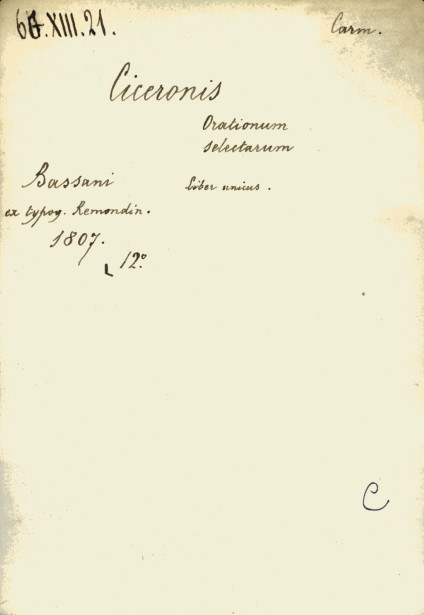 66.XIII.21.
Carm.
Ciceronis
Orationum
selectarum
Liber unicus.
Bassani
ex typog. Remondin.
1807.
12°
C